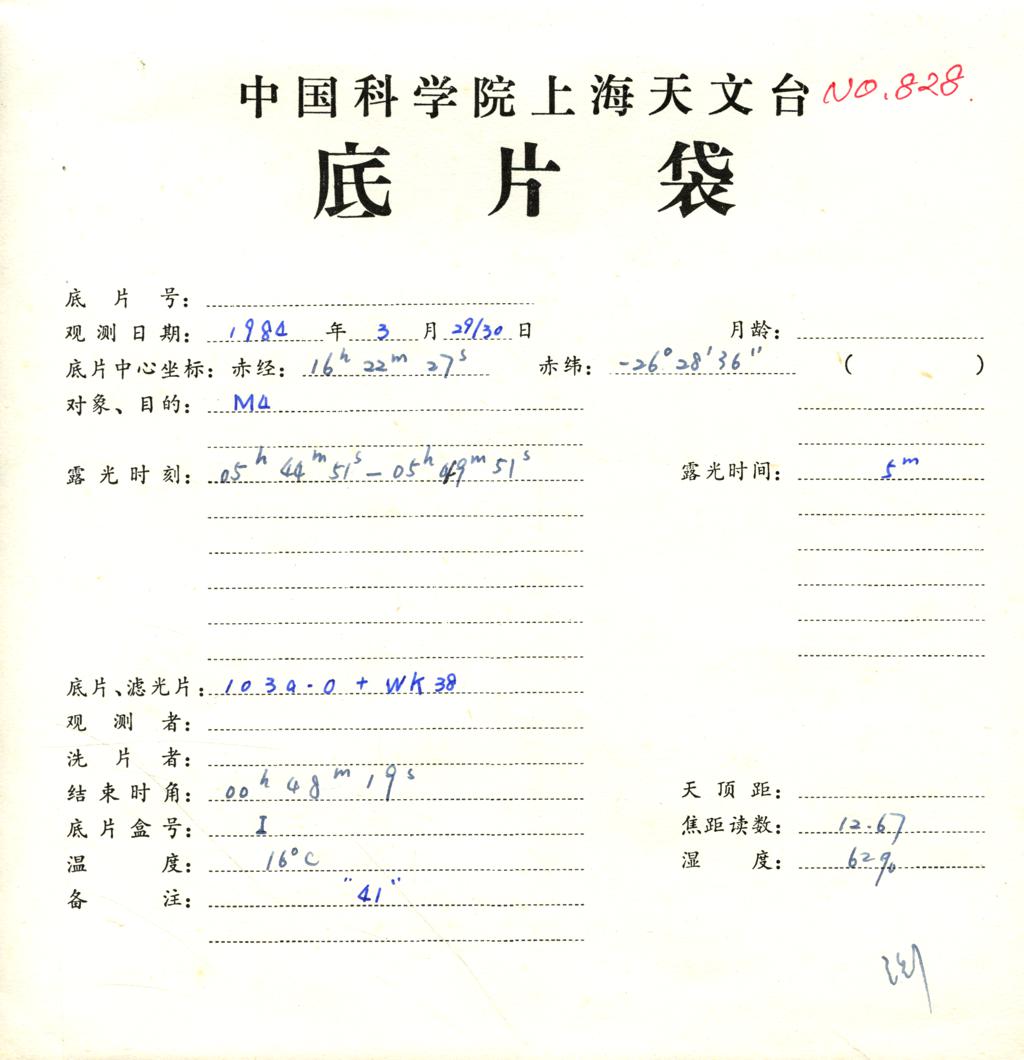 中国科学院上海天文台 NO.828
底片袋
底片号:
观测日期: 1984 年 3 月 29/30 日 月龄:
底片中心坐标: 赤经: 16h 22m 27s 赤纬: -26° 28' 36" ( )
对象、目的: M4
露光时刻: 05h 44m 51s — 05h 49m 51s 露光时间: 5m
底片、滤光片: 103a-O + WK38
观测者:
洗片者:
结束时角: 00h 48m 19s 天顶距:
底片盒号: I 焦距读数: 12.67
温度: 16°C 湿度: 62%
备注: "41"